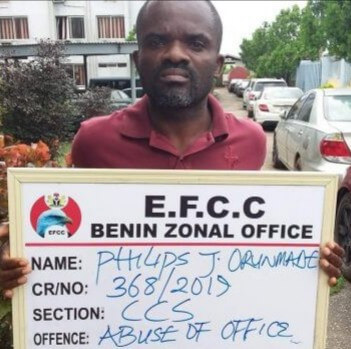 E.F.C.C
BENIN ZONAL OFFICE
EFCC
NAME: PHILIPS J. ORUNMADE
CR/NO: 368/2019
SECTION: CCS
OFFENCE: ABUSE OF OFFICE